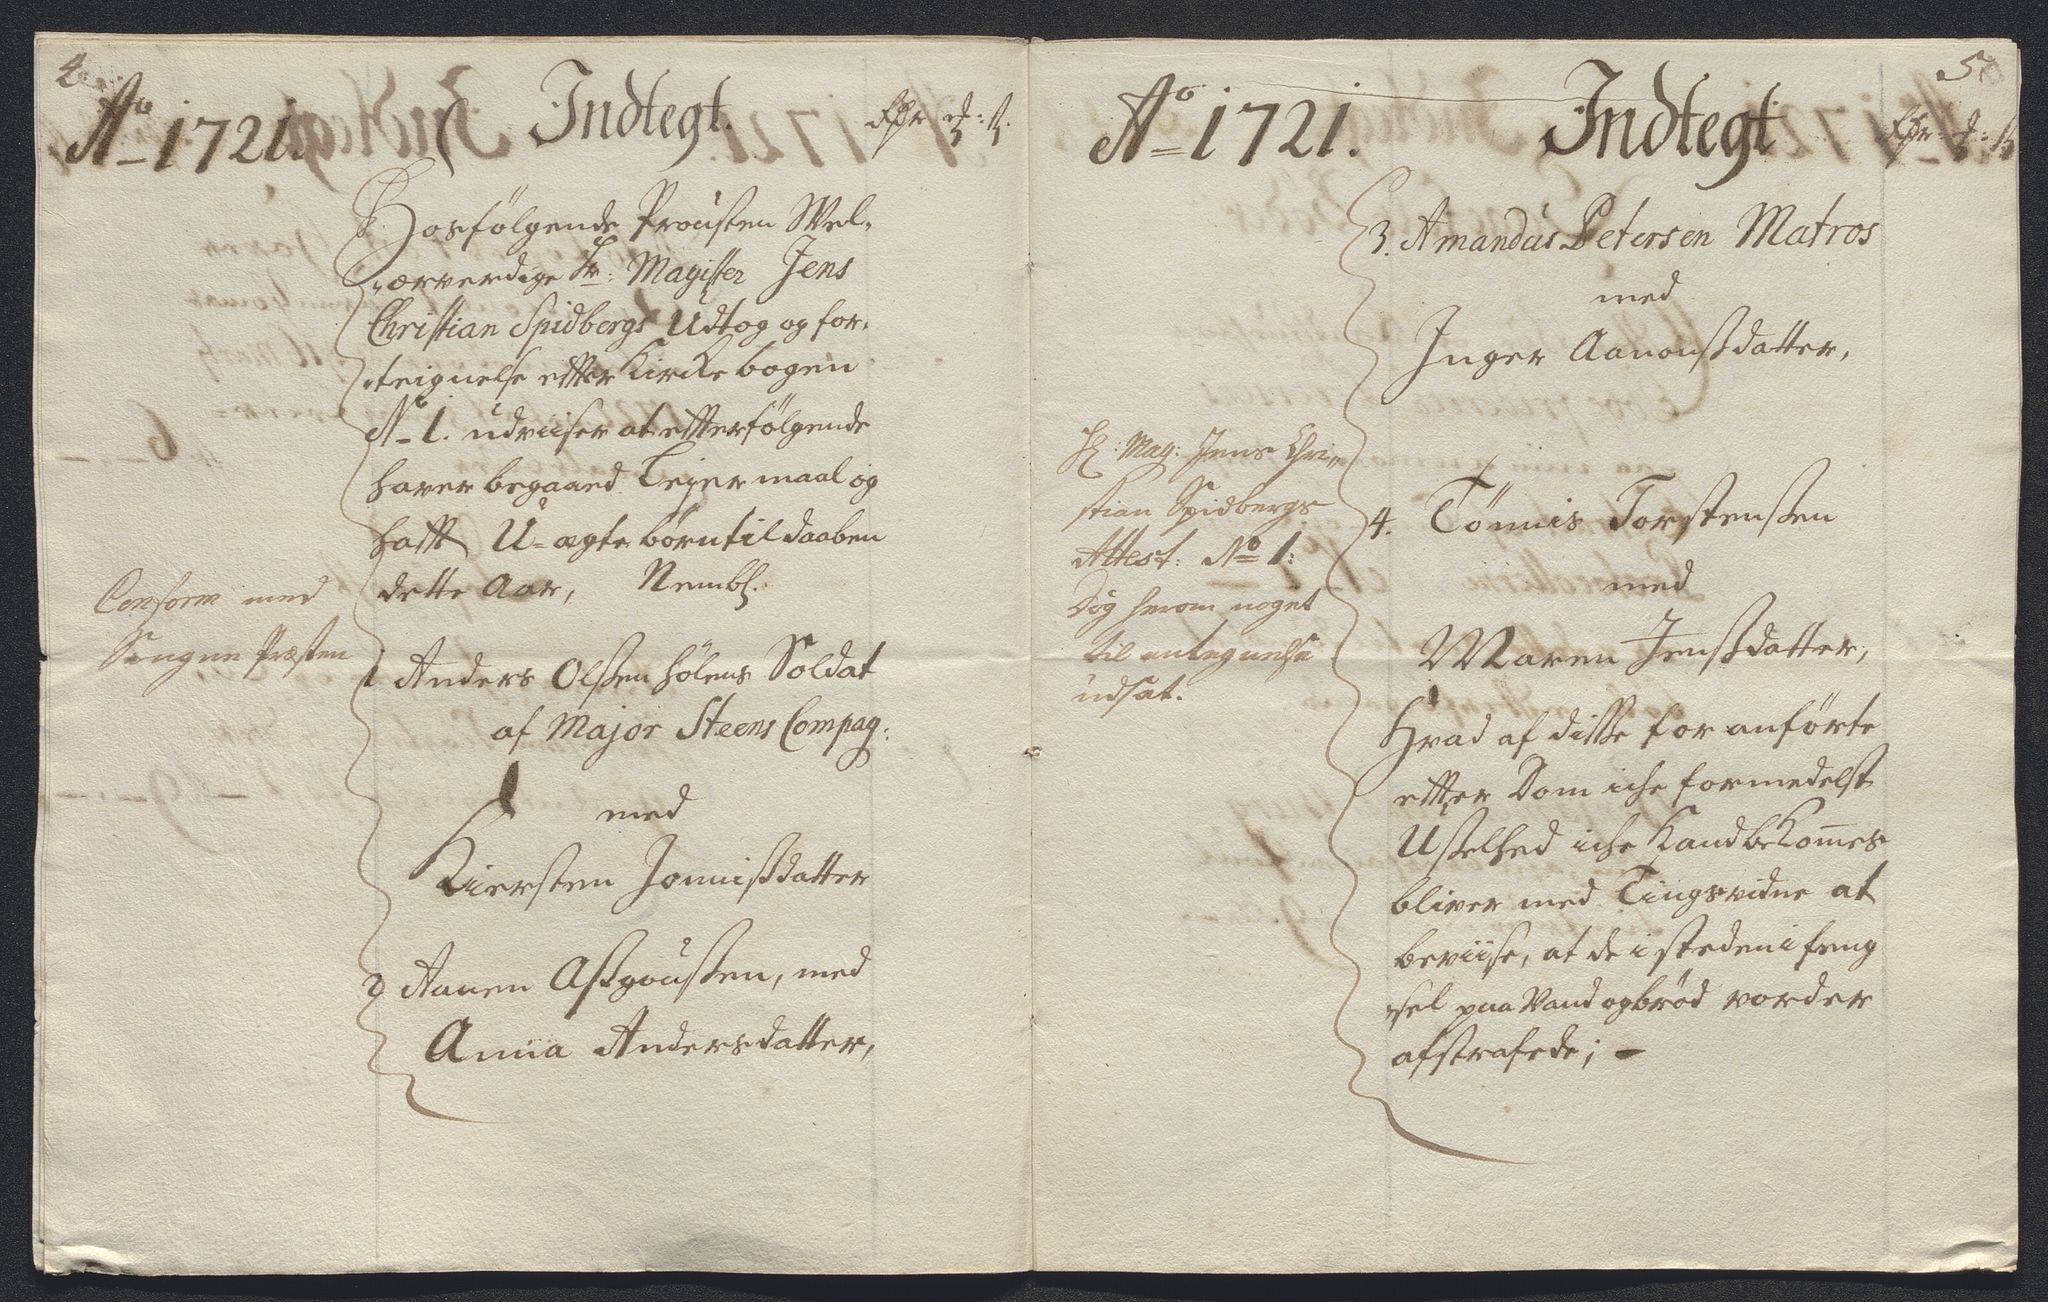 4
Ao 1721. Indtegt. Rdr ₰: ß.
Hosfølgende Prousten Wel„
„ærverdige Hr: Magister Jens
Christian Spidbergs Udtog og for„
„teignelse etter Kircke bogen
No 1. udviiser at etterfølgende
haver begaaed Leyermaal og
hafft U-ægte børn til daaben
dette Aar, Nembl.
Conform med
Songne Præsten
1 Anders Olßen Hølens Soldat
af Major Steens Compag:
med
Kiersten Jonnißdatter
2 Aanen Aßgoußen, med
Anna Andersdatter,
5
Ao 1721. Indtegt Rdr: ₰: ß
3. Amandus Petersen Matros
med
Inger Aanonßdatter,
Hr: Mag: Jens Chri„
stian Spidbergs
Attest: No 1:
Dog herom noget
til antegnelse
udsat.
4. Tønnis Torstenßen
med
Maren Jenßdatter,
Hvad af disse for anførte
etter Dom iche formedelst
Uselhed iche Kand bekomes
bliver med Tingsvidne at
beviise, at de i steden i feng
„sel paa Vand og brød vorder
afstrafede; -